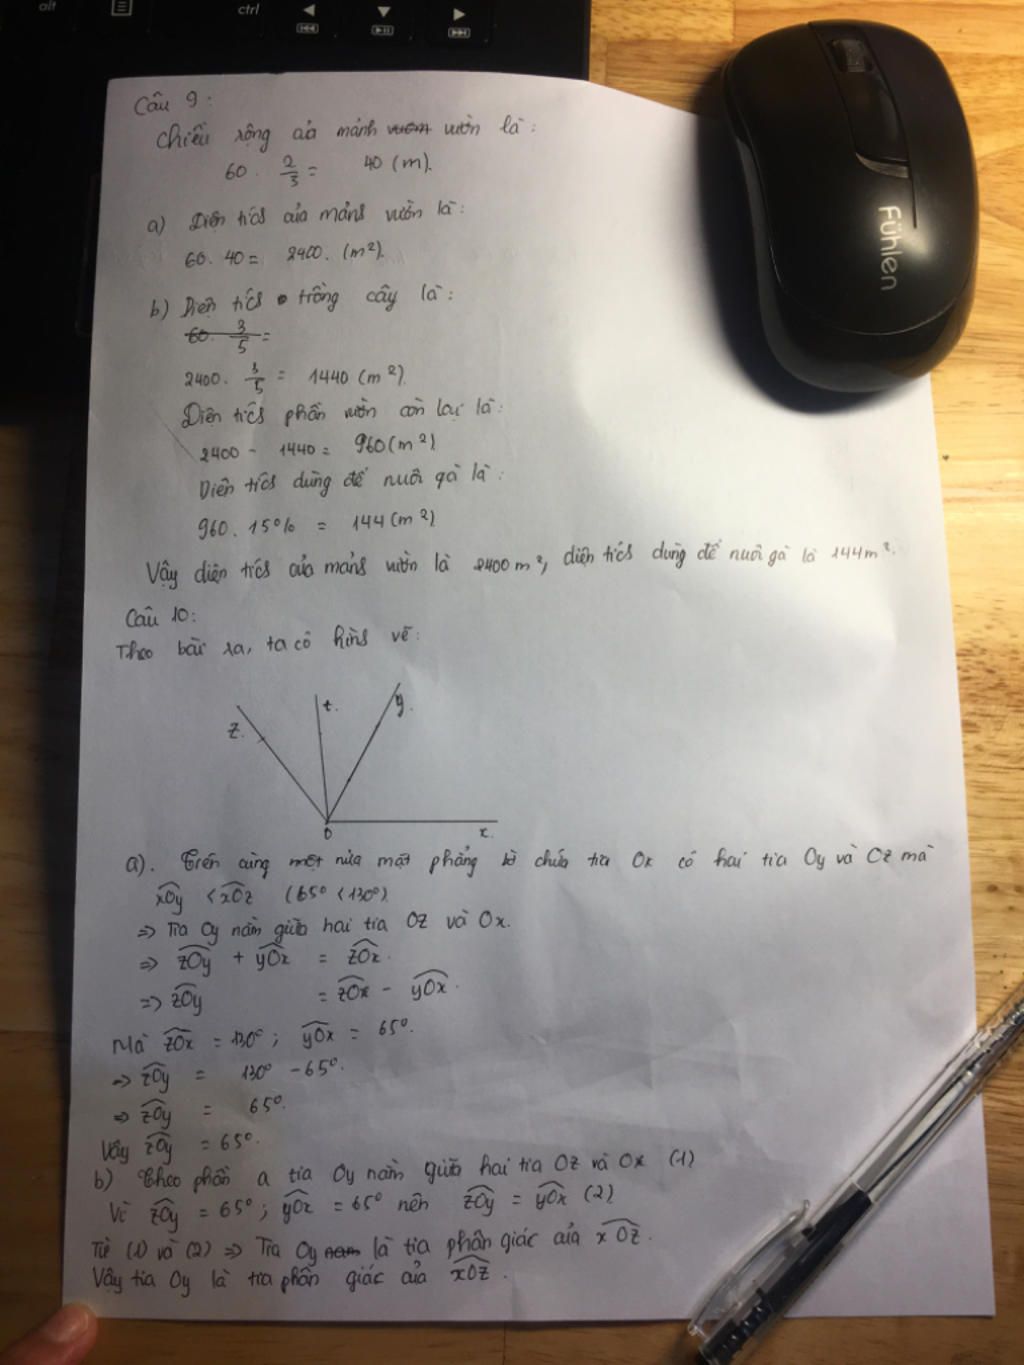 alt
ctrl
Fühlen
Câu 9:
Chiều rộng của mảnh vườn vườn là:
60 . 2/3 = 40 (m).
a) Diện tích của mảnh vườn là:
60. 40 = 2400. (m²).
b) Diện tích trồng cây là:
60. 3/5 =
2400. 3/5 = 1440 (m²).
Diện tích phần vườn còn lại là:
2400 - 1440 = 960 (m²)
Diện tích dùng để nuôi gà là:
960. 15% = 144 (m²)
Vậy diện tích của mảnh vườn là 2400 m², diện tích dùng để nuôi gà là 144 m².
Câu 10:
Theo bài ra, ta có hình vẽ:
z. t. y.
O x.
a). Trên cùng một nửa mặt phẳng bờ chứa tia Ox có hai tia Oy và Oz mà
xOy < xOz (65° < 130°)
=> Tia Oy nằm giữa hai tia Oz và Ox.
=> zOy + yOx = zOx.
=> zOy = zOx - yOx.
Mà zOx = 130°; yOx = 65°.
=> zOy = 130° - 65°.
=> zOy = 65°.
Vậy zOy = 65°.
b) Theo phần a tia Oy nằm giữa hai tia Oz và Ox (1)
Vì zOy = 65°; yOx = 65° nên zOy = yOx (2)
Từ (1) và (2) => Tia Oy nằm là tia phân giác của xOz.
Vậy tia Oy là tia phân giác của xOz.